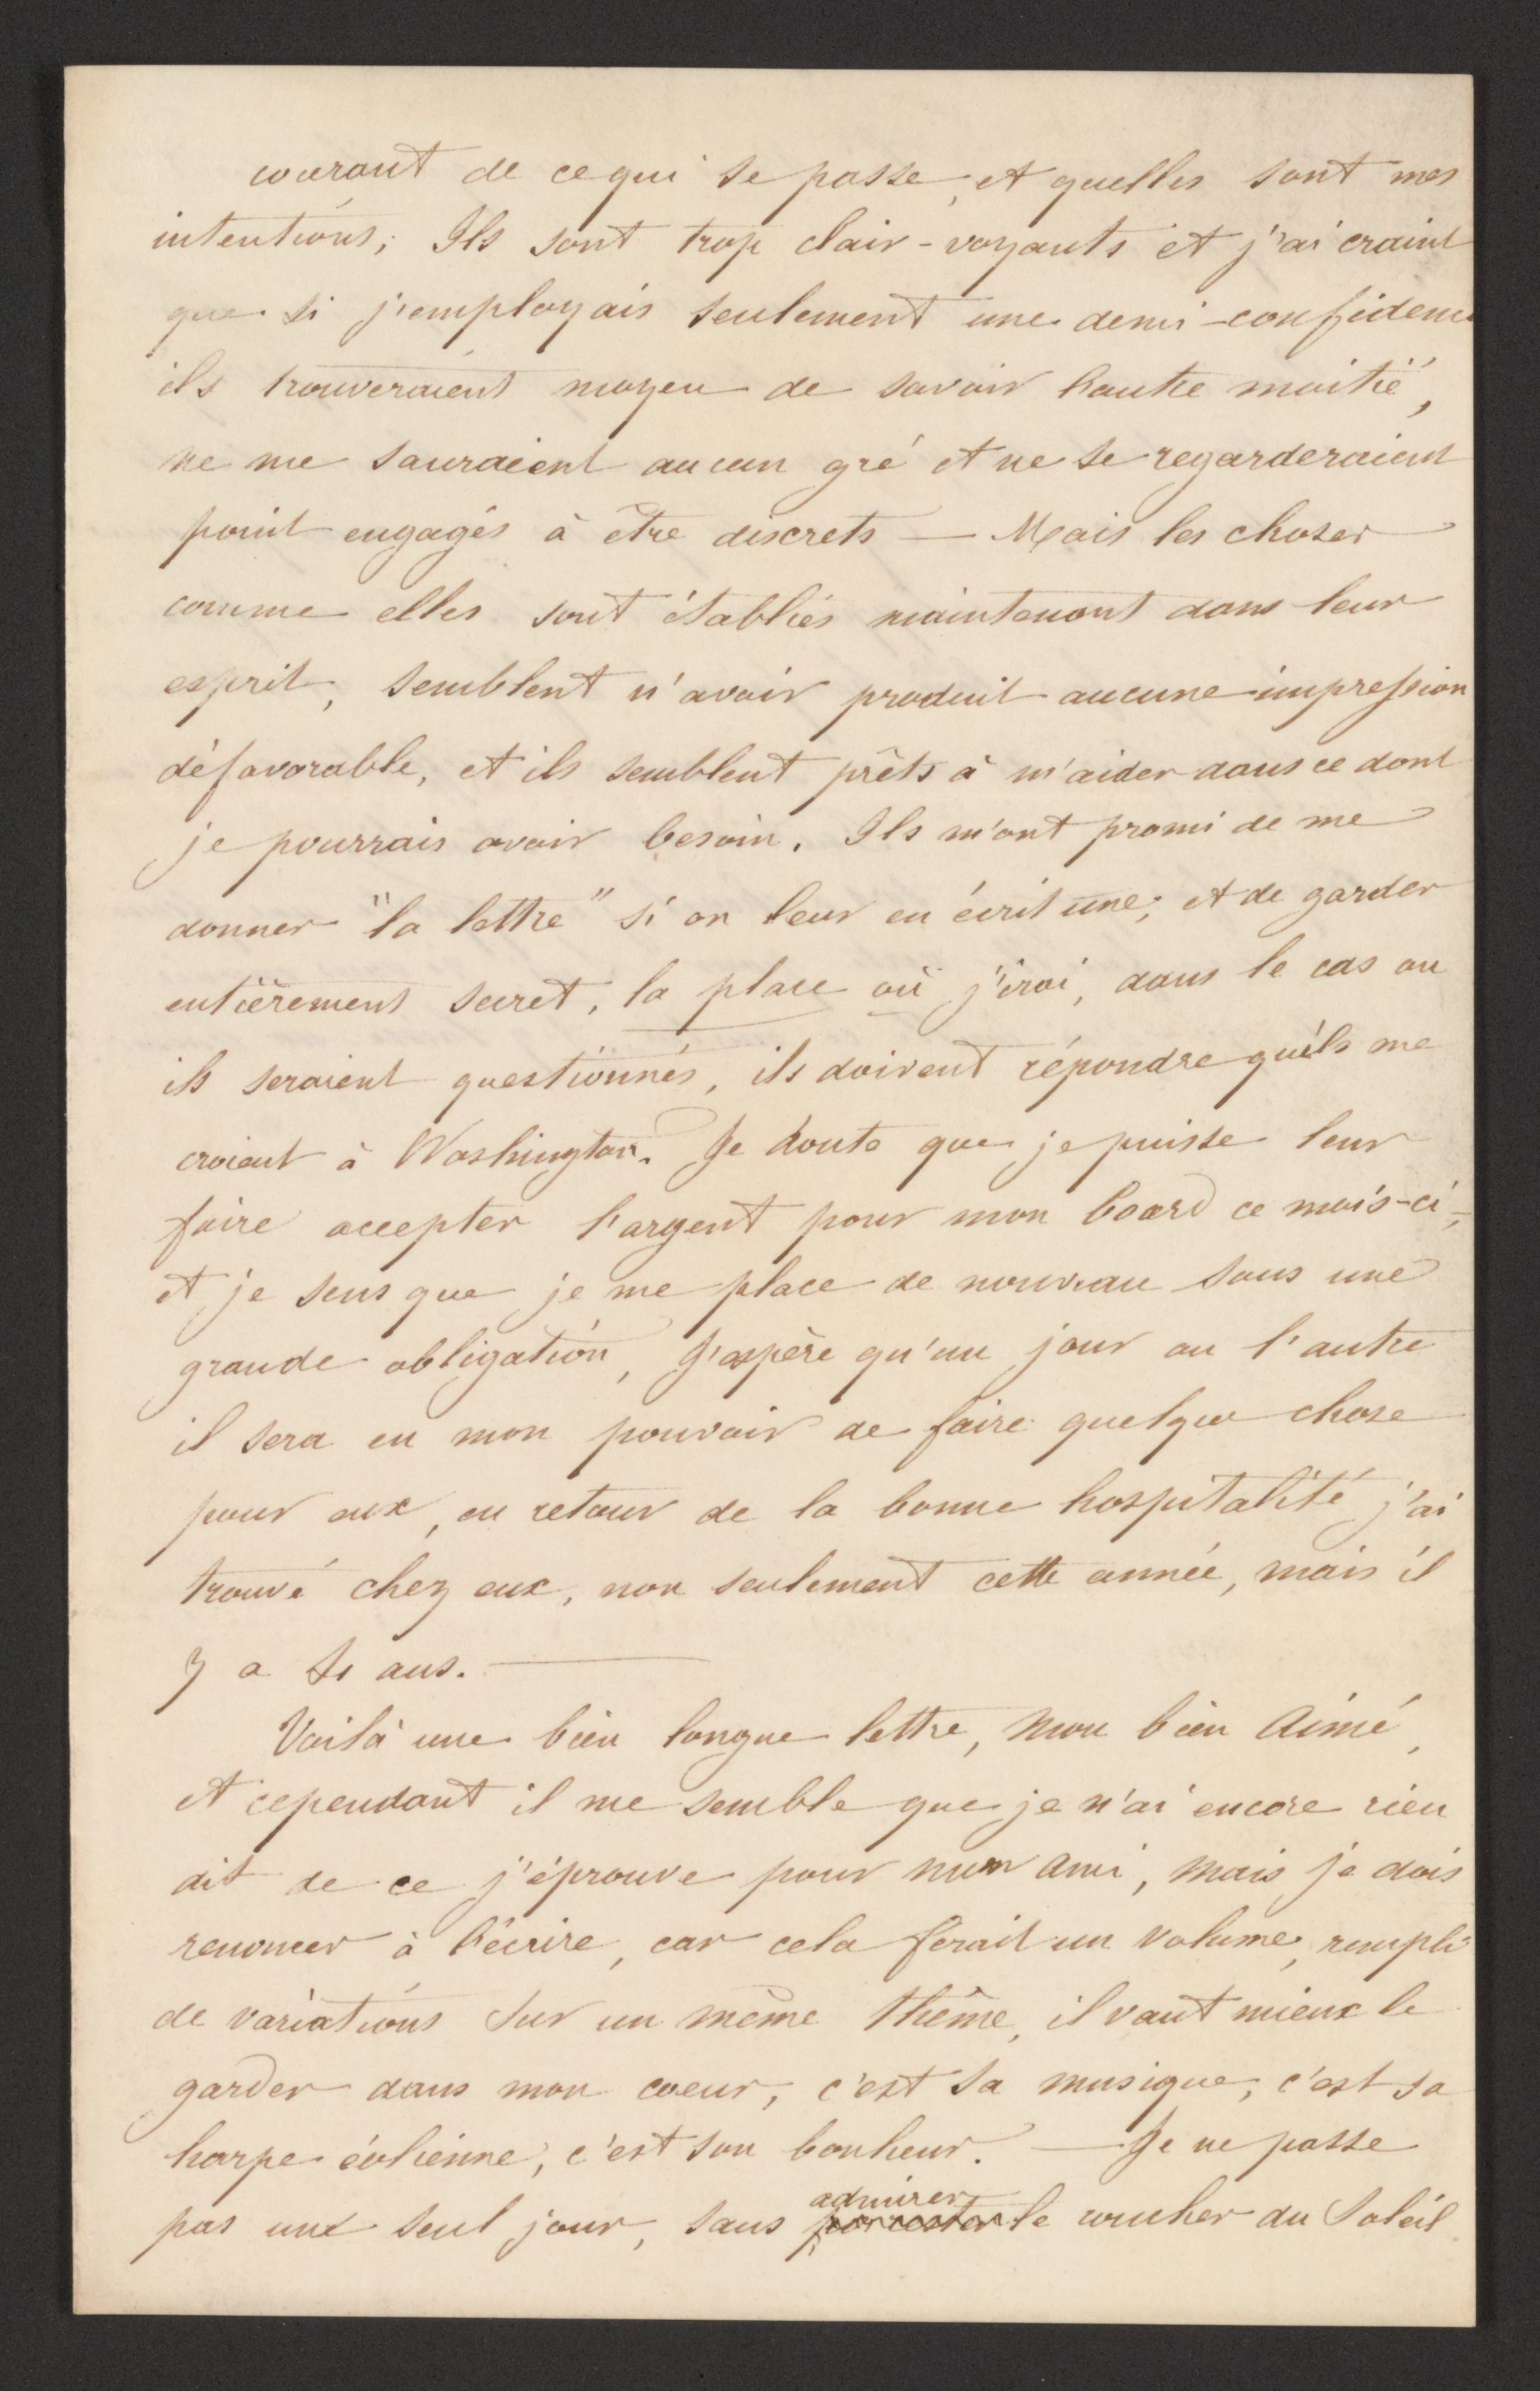 courant de ce qui se passe, et quelles sont mes
intentions; Ils sont trop clair-voyants et j'ai craint
que si j'employais seulement une demi-confidence
ils trouveraient moyen de savoir l'autre moitié,
ne me sauraient aucun gré et ne se regarderaient
point engagés à être discrets — Mais les choses
comme elles sont établiés maintenant dans leur
esprit, semblent n'avoir produit aucune impression
défavorable, et ils semblent prêts à m'aider dans ce dont
je pourrais avoir besoin. Ils m'ont promi de me
donner "la lettre" si on leur en écrit une; et de garder
entièrement secret, la place où j'irai, dans le cas ou
ils seraient questionnés, ils doivent répondre qu'ils me
croient à Washington. Je doute que je puisse leur
faire accepter l'argent pour mon board ce mois-ci,
et je sens que je me place de nouveau sous une
grande obligation, J'espère qu'un jour ou l'autre
il sera en mon pouvoir de faire quelque chose
pour eux, en retour de la bonne hospitalité j'ai
trouvé chez eux, non seulement cette année, mais il
y a si ans. —
Voilà une bien longue lettre, mon bien Aimé,
et cependant il me semble que je n'ai encore rien
dit de ce j'éprouve pour mon ami, mais je dois
renoncer à l'écrire, car cela ferait un volume, rempli
de variations sur un même thême, il vaut mieux le
garder dans mon coeur, c'est sa musique, c'est sa
harpe éolienne, c'est son bonheur. — Je ne passe
admirer
pas une seul jour, sans le coucher du Soleil